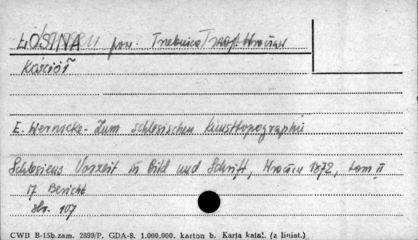 ŁOSINA pow. Trzebnica Wrocław
Kościół
E. Wernicke - Zum schlesischen Kunsttopographie
Schlesiens Vorzeit in Bild und Schrift, Wrocław 1872, tom II
17 Bericht
Str. 107
CWB B-15b.zam. 2899/P. GDA-8. 1.000.000. karton b. Karta katal. (z liniat.)